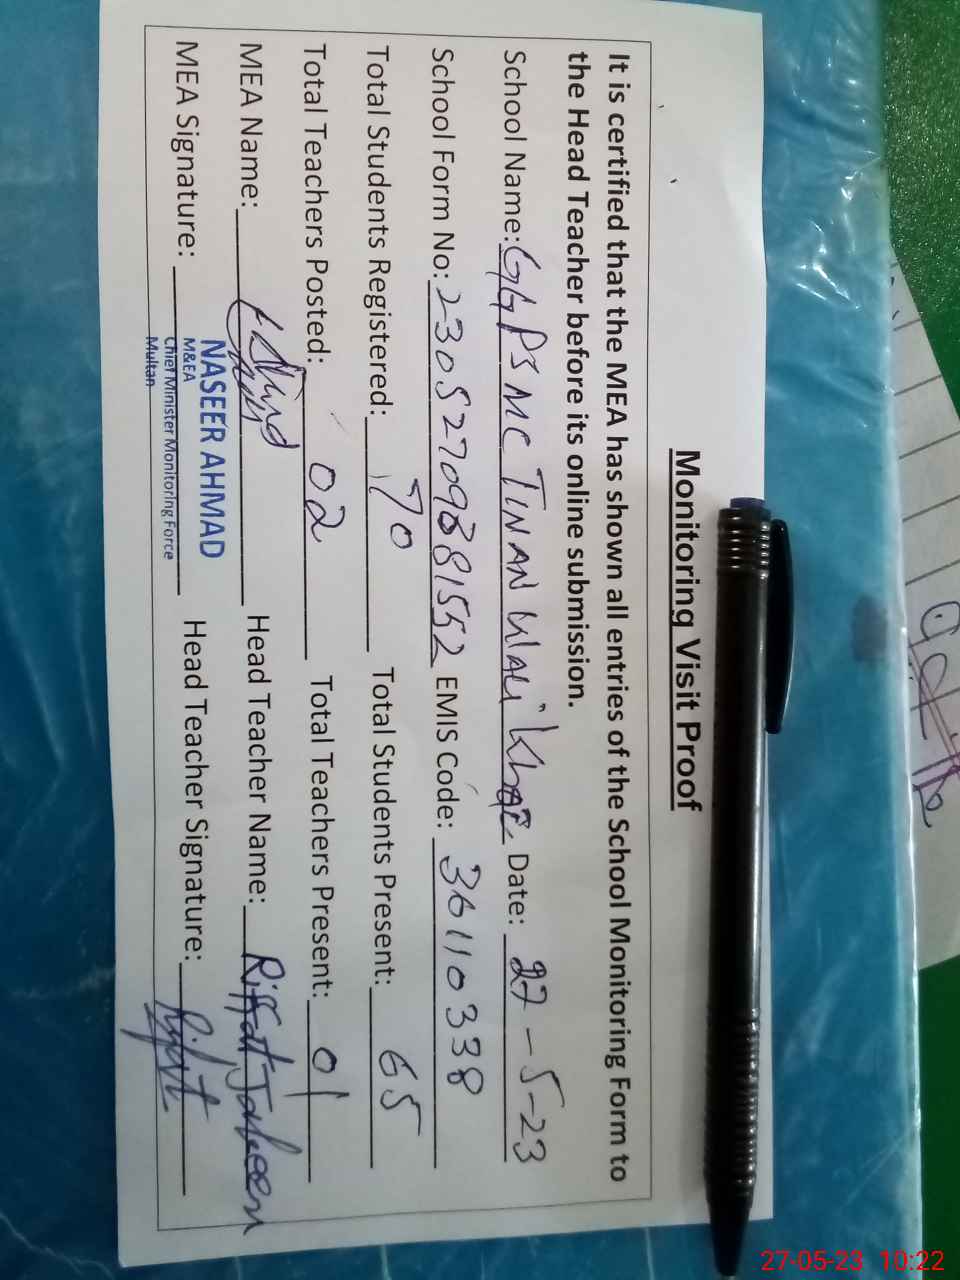 Monitoring Visit Proof
It is certified that the MEA has shown all entries of the School Monitoring Form to
the Head Teacher before its online submission.
School Name: GGPS MC TINAN WALI Khoi Date: 27-5-23
School Form No: 230527098381552 EMIS Code: 36110338
Total Students Registered: 70 Total Students Present: 65
Total Teachers Posted: 02 Total Teachers Present: 01
MEA Name: Head Teacher Name: Riffat Jabeen
MEA Signature: Head Teacher Signature: Riffat
NASEER AHMAD
M&EA
Chief Minister Monitoring Force
Multan
27-05-23 10:22